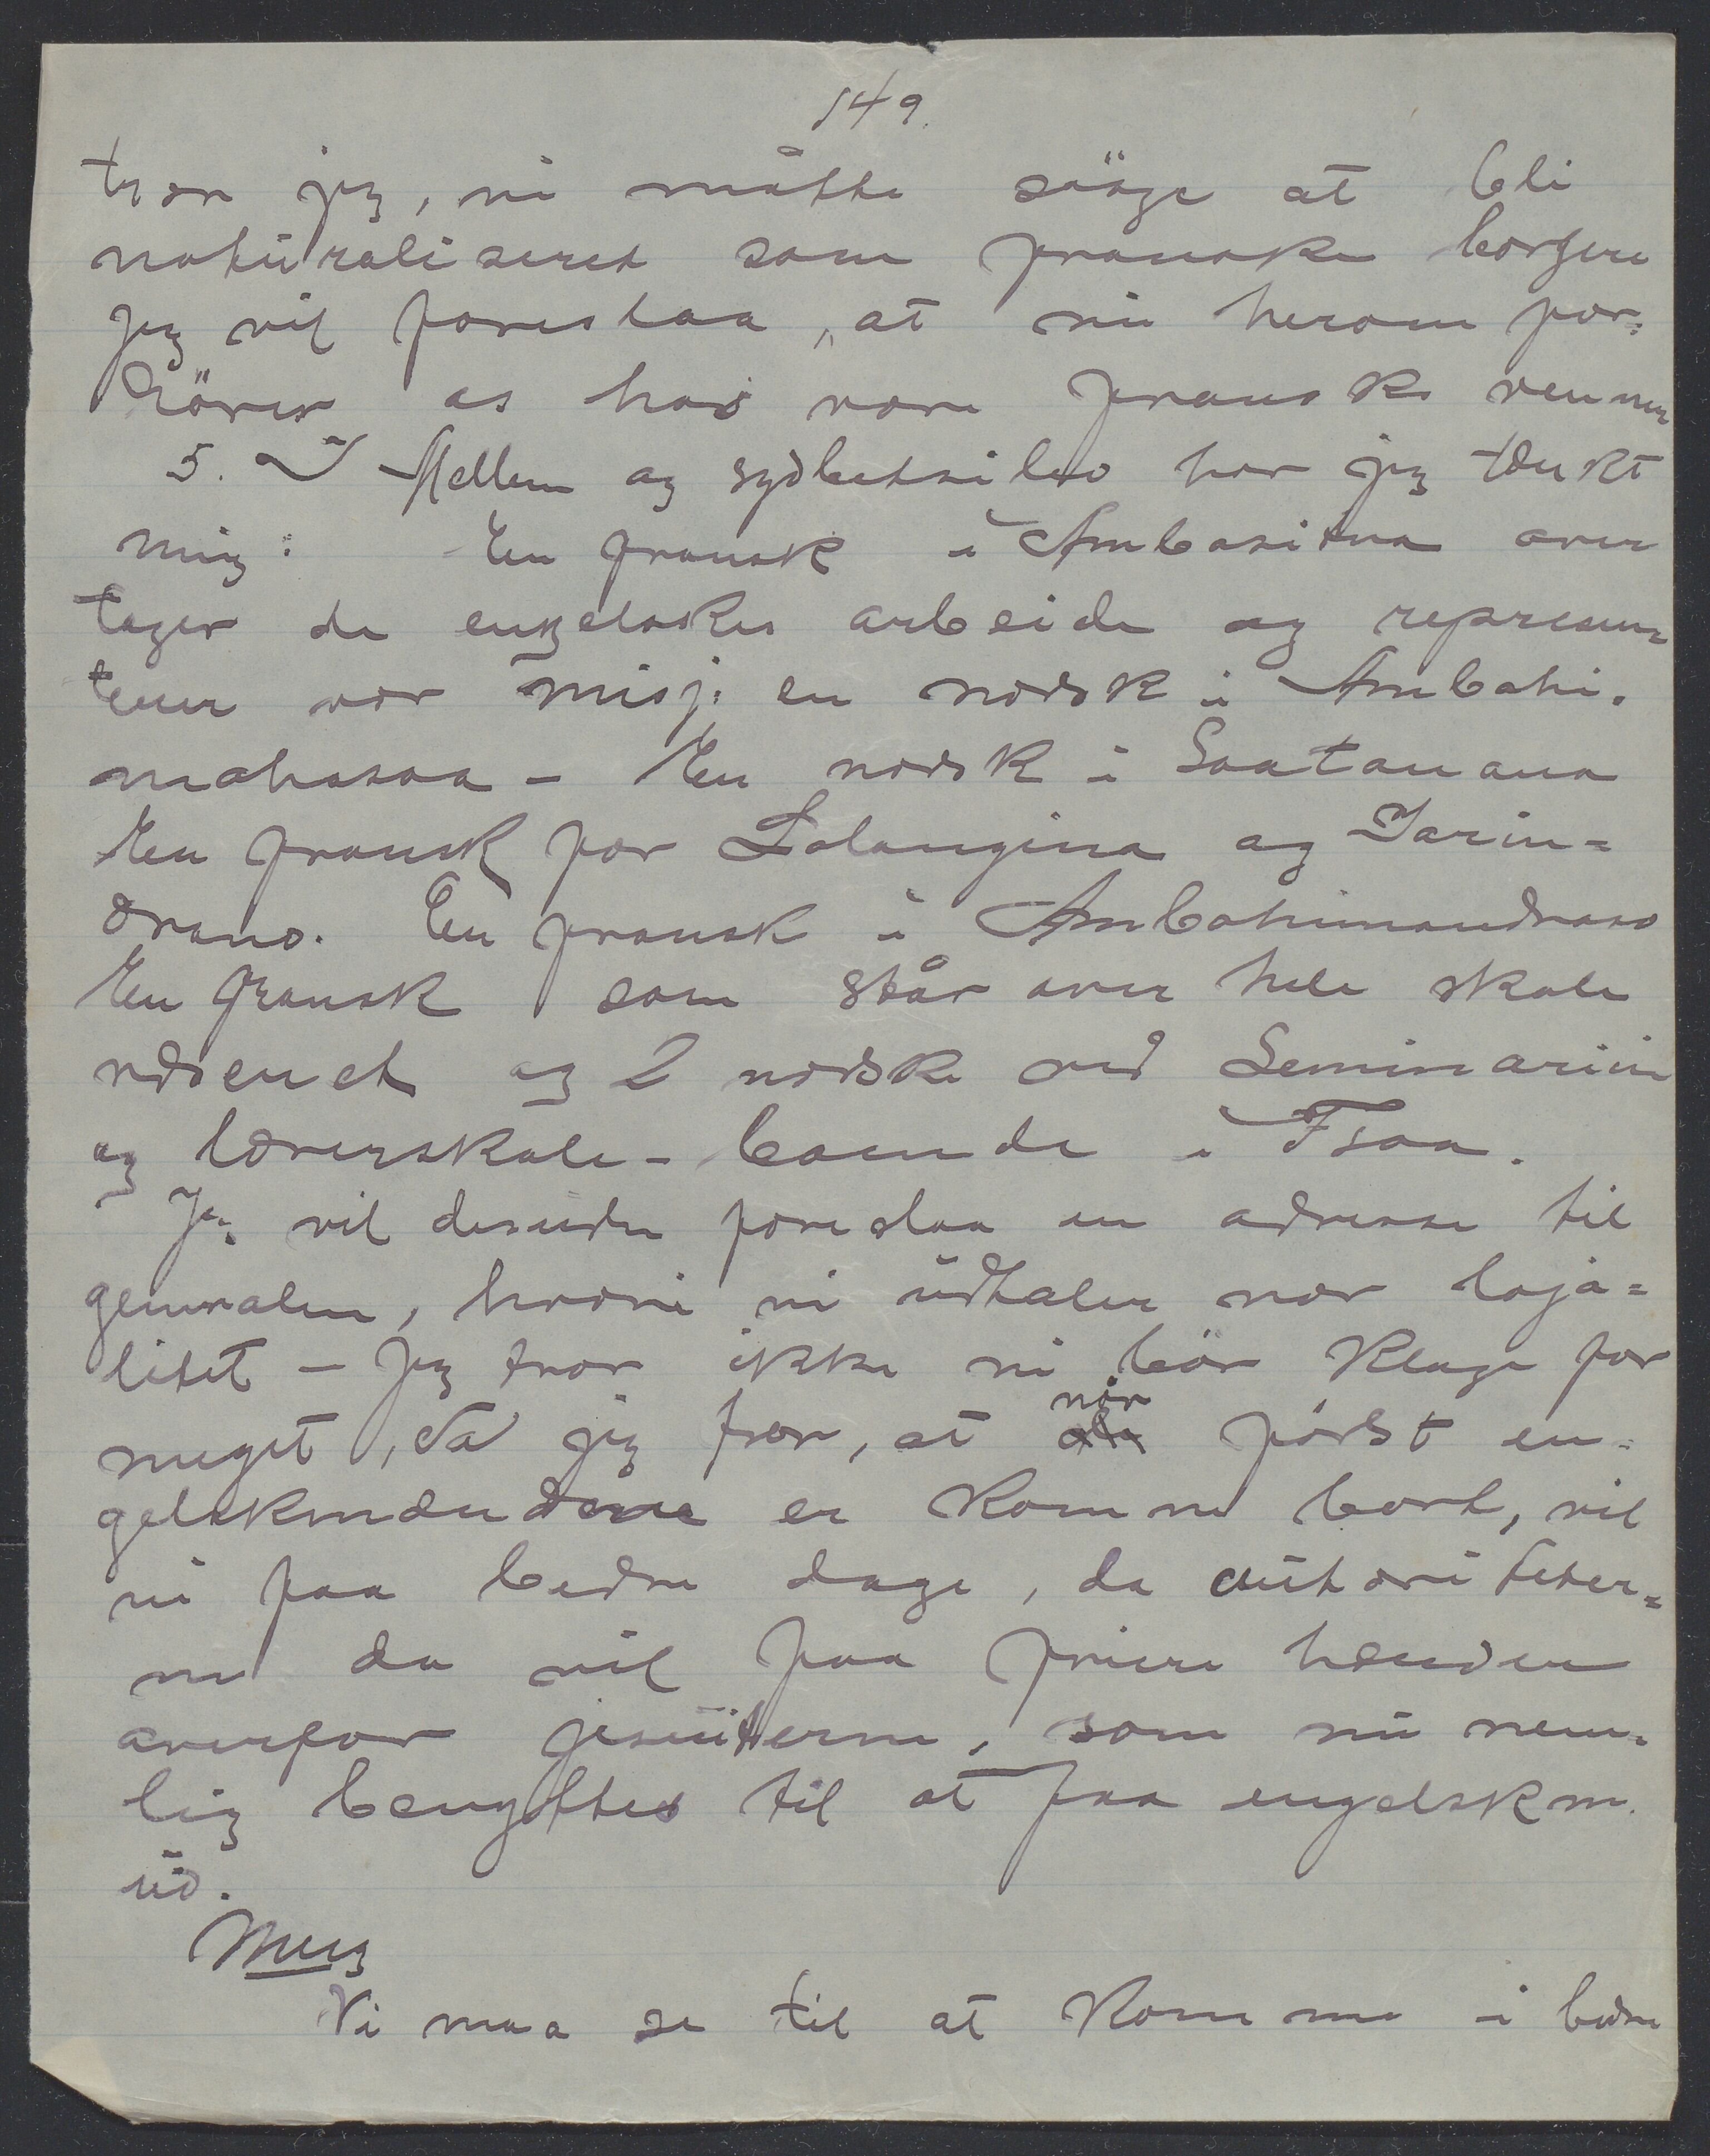 149.
tror jeg, vi måtte söge at bli
naturaliseret som franske borgere
Jeg vil foreslaa, at vi herom for=
hörer os hos vore franske venner
5. I Mellem og sydbetsileo har jeg tænkt
mig: En fransk i Ambositra over
tager de engelskes arbeide og represen=
terer vor misj: en norsk i Ambohi.
mahasoa - En norsk i Soatanana
En fransk for Lalangina og Iarin=
drano. En fransk i Ambohimandroso
En fransk som står over hele skole
væsenet og 2 norske ved Seminariun
og lærerskole - boende i Fsoa.
Jeg vil desuden foreslaa en adresse til
generalen, hvori vi udtaler vor loja=
litet - Jeg tror ikke vi bör klage for
meget, da jeg tror, at når först en=
gelskmændene er komne bort, vil
vi faa bedre dage, da autoriteter=
ne da vil faa friere hænder
overfor jesuitterne, som nu nem=
lig benyttes til at faa engelskm.
ud.
Meeg
Vi maa se til at komme i bedre